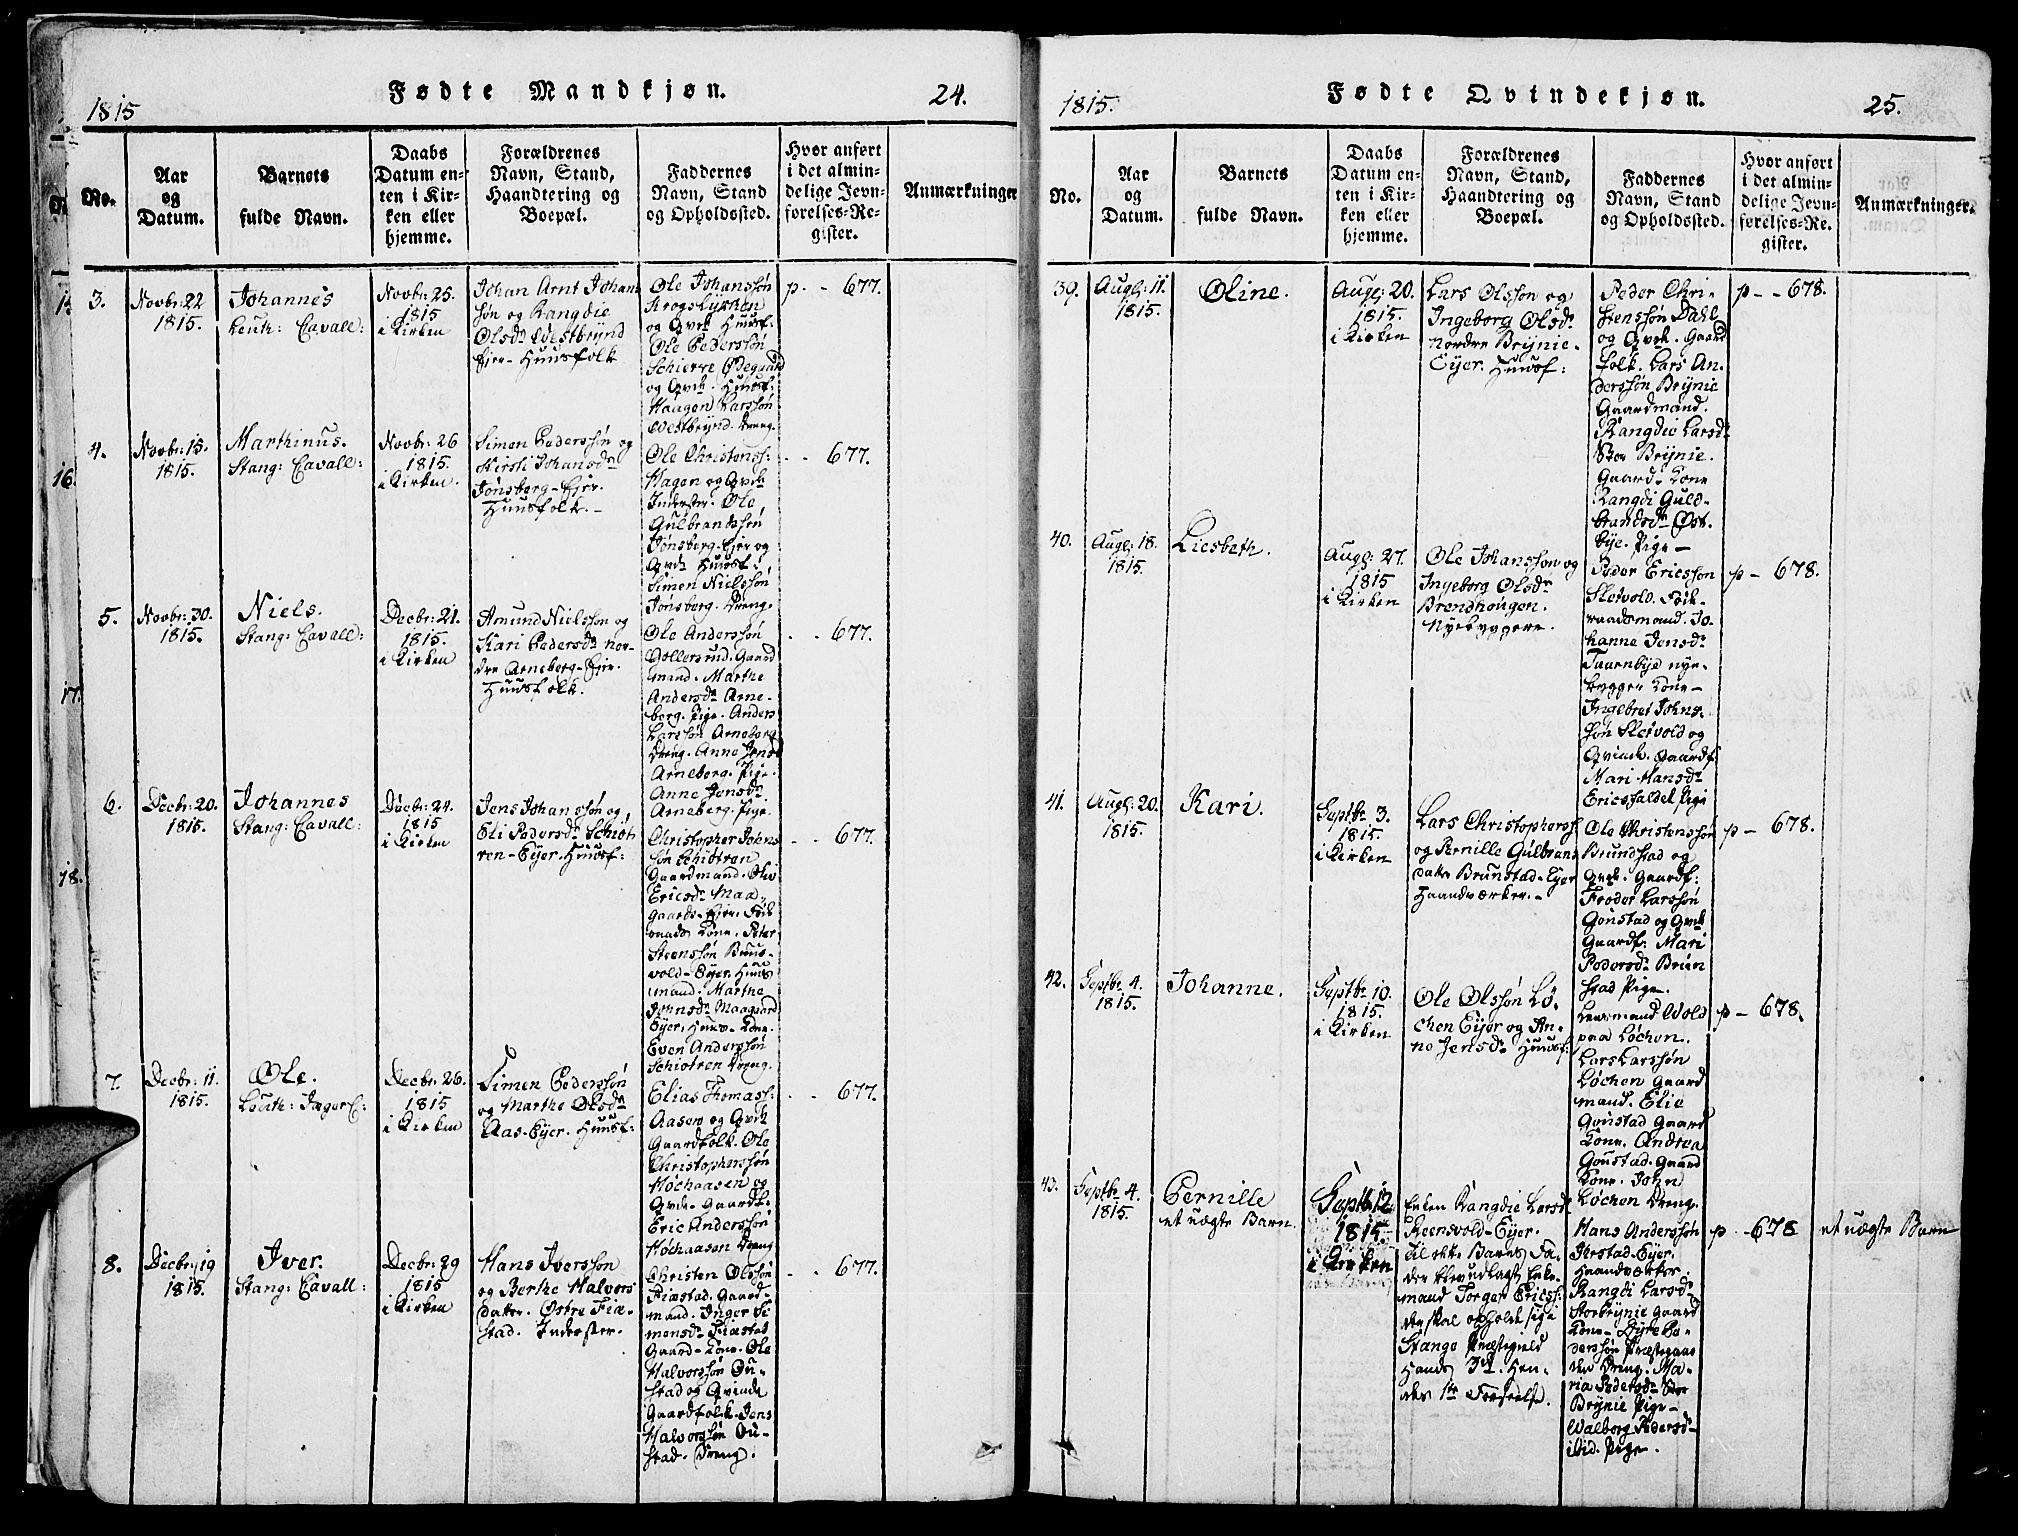 1815
Fødte Mandkjøn.
24.
No.
Aar
og
Datum.
Barnets
fulde Navn.
Daabs
Datum en-
ten i Kir-
ken eller
hjemme.
Forældrenes
Navn, Stand,
Haandtering og
Boepæl.
Faddernes
Navn, Stand
og Opholdssted.
Hvor anført
i det almin-
delige Jevn-
førelses-Re-
gister.
Anmærkninger
3.
Novbr: 22
1815.
Johannes
Leuth: Cavall:
Novbr: 25.
1815
i Kirken
Johan Arnt Johan
søn og Rangdie
Olsdr Westbrynd
Ejer- Huusfolk
Ole Johanssøn
Krogslykken
og Qvde Huusf:
Ole Pederssøn
Schierre Ødegaard
og Qvde. Huusf:
Haagen Larssøn
Westbrynd. Dreng.
p. - 677.
4.
Novbr: 15.
1815.
Marthinus.
Stang: Cavall:
Novbr: 26
1815.
i Kirken.
Simen Pederssøn og
Kirsti Johansdr
Jønsberg-Ejer.
Huusfolk. -
Ole Christenss:
Hagen og Qvde
Inderster. Ole
Gulbrandssøn
Jønsberg-Ejer og
Qvde Huusf:
Simen Nielssøn
Jønsberg. Dreng.
- - 677.
5.
Novbr: 30.
1815.
Niels.
Stang: Cavall:
Decbr: 21.
1815.
i Kirken
Amund Nielssøn og
Kari Pedersdr nor-
dre Arneberg-Ejer.
Huusfolk.
Ole Anderssøn
Gollersrud. Gaard
mand. Marthe
Andersdr Arne-
berg. Pige. Anders
Larssøn Arneberg
Dreng. Anne Jensd
Arneberg. Pige.
Anne Jensdr
Arneberg. Pige.
- - 677.
6.
Decbr: 20.
1815.
Johannes
Stang: Cavall:
Decbr: 24.
1815
i Kirken
Jens Johanssøn og
Eli Pedersdr Schiøt
ren-Ejer. Huusf:
Christopher Johns
søn Schiøtren
Gaardmand. Oliv
Ericsdr Maa-
gaards-Ejer. Føde
raads Kone. Peter
Steenssøn Bruus-
vold-Ejer. Huus
mand. Marthe
Johnsdr Maagaard
Ejer. Huus-Kone.
Even Anderssøn
Schiøtren Dreng.
- - 677.
7.
Decbr: 11.
1815.
Ole.
Leuth: Jæger C:
Decbr: 26.
1815
i Kirken
Simen Pederssøn
og Marthe Olsdr
Aas-Ejer. Huusf:
Elias Thomass:
Aasen og Qvde
Gaardfolk. Ole
Christopherssøn
Høchaasen og
Qvde. Gaardf:
Eric Anderssøn
Høchaasen Dreng
- - 677.
8.
Decbr: 19
1815.
Iver.
Stang: Cavall:
Decbr: 29
1815
i Kirken
Hans Iverssøn
og Berthe Halvors
datter. Østre Fiæ-
stad. Inderster.
Christen Olssøn
Fiæstad. Gaard-
mand. Inger Si
monsdr Fiæstad
Gaard-Kone. Ole
Halvorssøn Ou-
stad og Qvinde
Gaardfolk. Jens
Halvorssøn Ou-
stad. Dreng.
- - 677.
16.
17.
18.
1815.
Fødte Qvindekjøn.
25.
No.
Aar
og
Datum.
Barnets
fulde Navn.
Daabs
Datum en-
ten i Kir-
ken eller
hjemme.
Forældrenes
Navn, Stand,
Haandtering og
Boepæl.
Faddernes
Navn, Stand
og Opholdssted.
Hvor anført
i det almin-
delige Jevn-
førelses-Re-
gister.
Anmærkninger.
39.
Aug: 11.
1815.
Oline.
Aug: 20.
1815.
i Kirken
Lars Olssøn og
Ingeborg Olsdr
nordre Brynie-
Ejer. Huusf:
Peder Chri-
stenssøn Dahl
og Qvde. Gaard
folk. Lars An-
derssøn Brynie
Gaardmand.
Rangdie Larsdr
Stor Brynie.
Gaard-Kone
Rangdi Guld-
brandsdr Øst-
bye. Pige -
p - - 678.
40.
Aug: 18.
1815.
Liesbeth.
Aug: 27.
1815
i Kirken
Ole Johanssøn og
Ingeborg Olsdr
Brendhougen.
Nyebyggere.
Peder Ericssøn
Sletvold. Føde
raadsmand. Jo
hanne Jensdr
Taarnbye nye-
bygger Kone-
Ingebret Johns-
søn Sletvold og
Qvinde. Gaardf.
Mari Hansdr
Ericsfaldet Pige
p - 678.
41.
Aug: 20.
1815.
Kari.
Septbr 3.
1815.
i Kirken
Lars Christopherss.
og Pernille Gulbran
datter Brunstad-Ejer
Haandværker. -
Ole Christenssøn
Brundstad og
Qvde. Gaardf:
Froder Larssøn
Gonstad og Qvde
Gaardf: Mari
Pedersdr Brun
stad Pige.
p - 678.
42.
Septbr 4.
1815.
Johanne.
Septbr 10.
1815.
i Kirken
Ole Olssøn Lø-
chen Ejer og An-
ne Jensdr Huusf:
Lensmand Wold
paa Løchen.
Lars Larssøn
Løchen Gaard
mand. Elie
Gonstad Gaard
Kone. Andrea
Gonstad. Gaard
Kone. John
Løchen Dreng.
p - 678.
43.
Septbr 4.
1815.
Pernille
et uægte Barn.
Septbr 12
1815.
i Kirken
Enken Rangdie Larsd
Reensvold-Ejer.
til dette Barns Fa-
der blev udlagt Enke-
mand Torger Ericss:
der skal opholde sig i
Stange Præstegield
Hands 3de. Hen-
des 1te Forseelse.
Hans Anderssøn
Jerstad-Ejer.
Haandværker.
Rangdi Larsdr
Storbrynie Gaard
Kone- Dyre Pe-
derssøn Præstegaar
den Dreng. Ma-
ria Pedersdr Stor
Brynie Pige-
Walborg Pedersd-
ibid. Pige.
p - 678
et uægte Barn